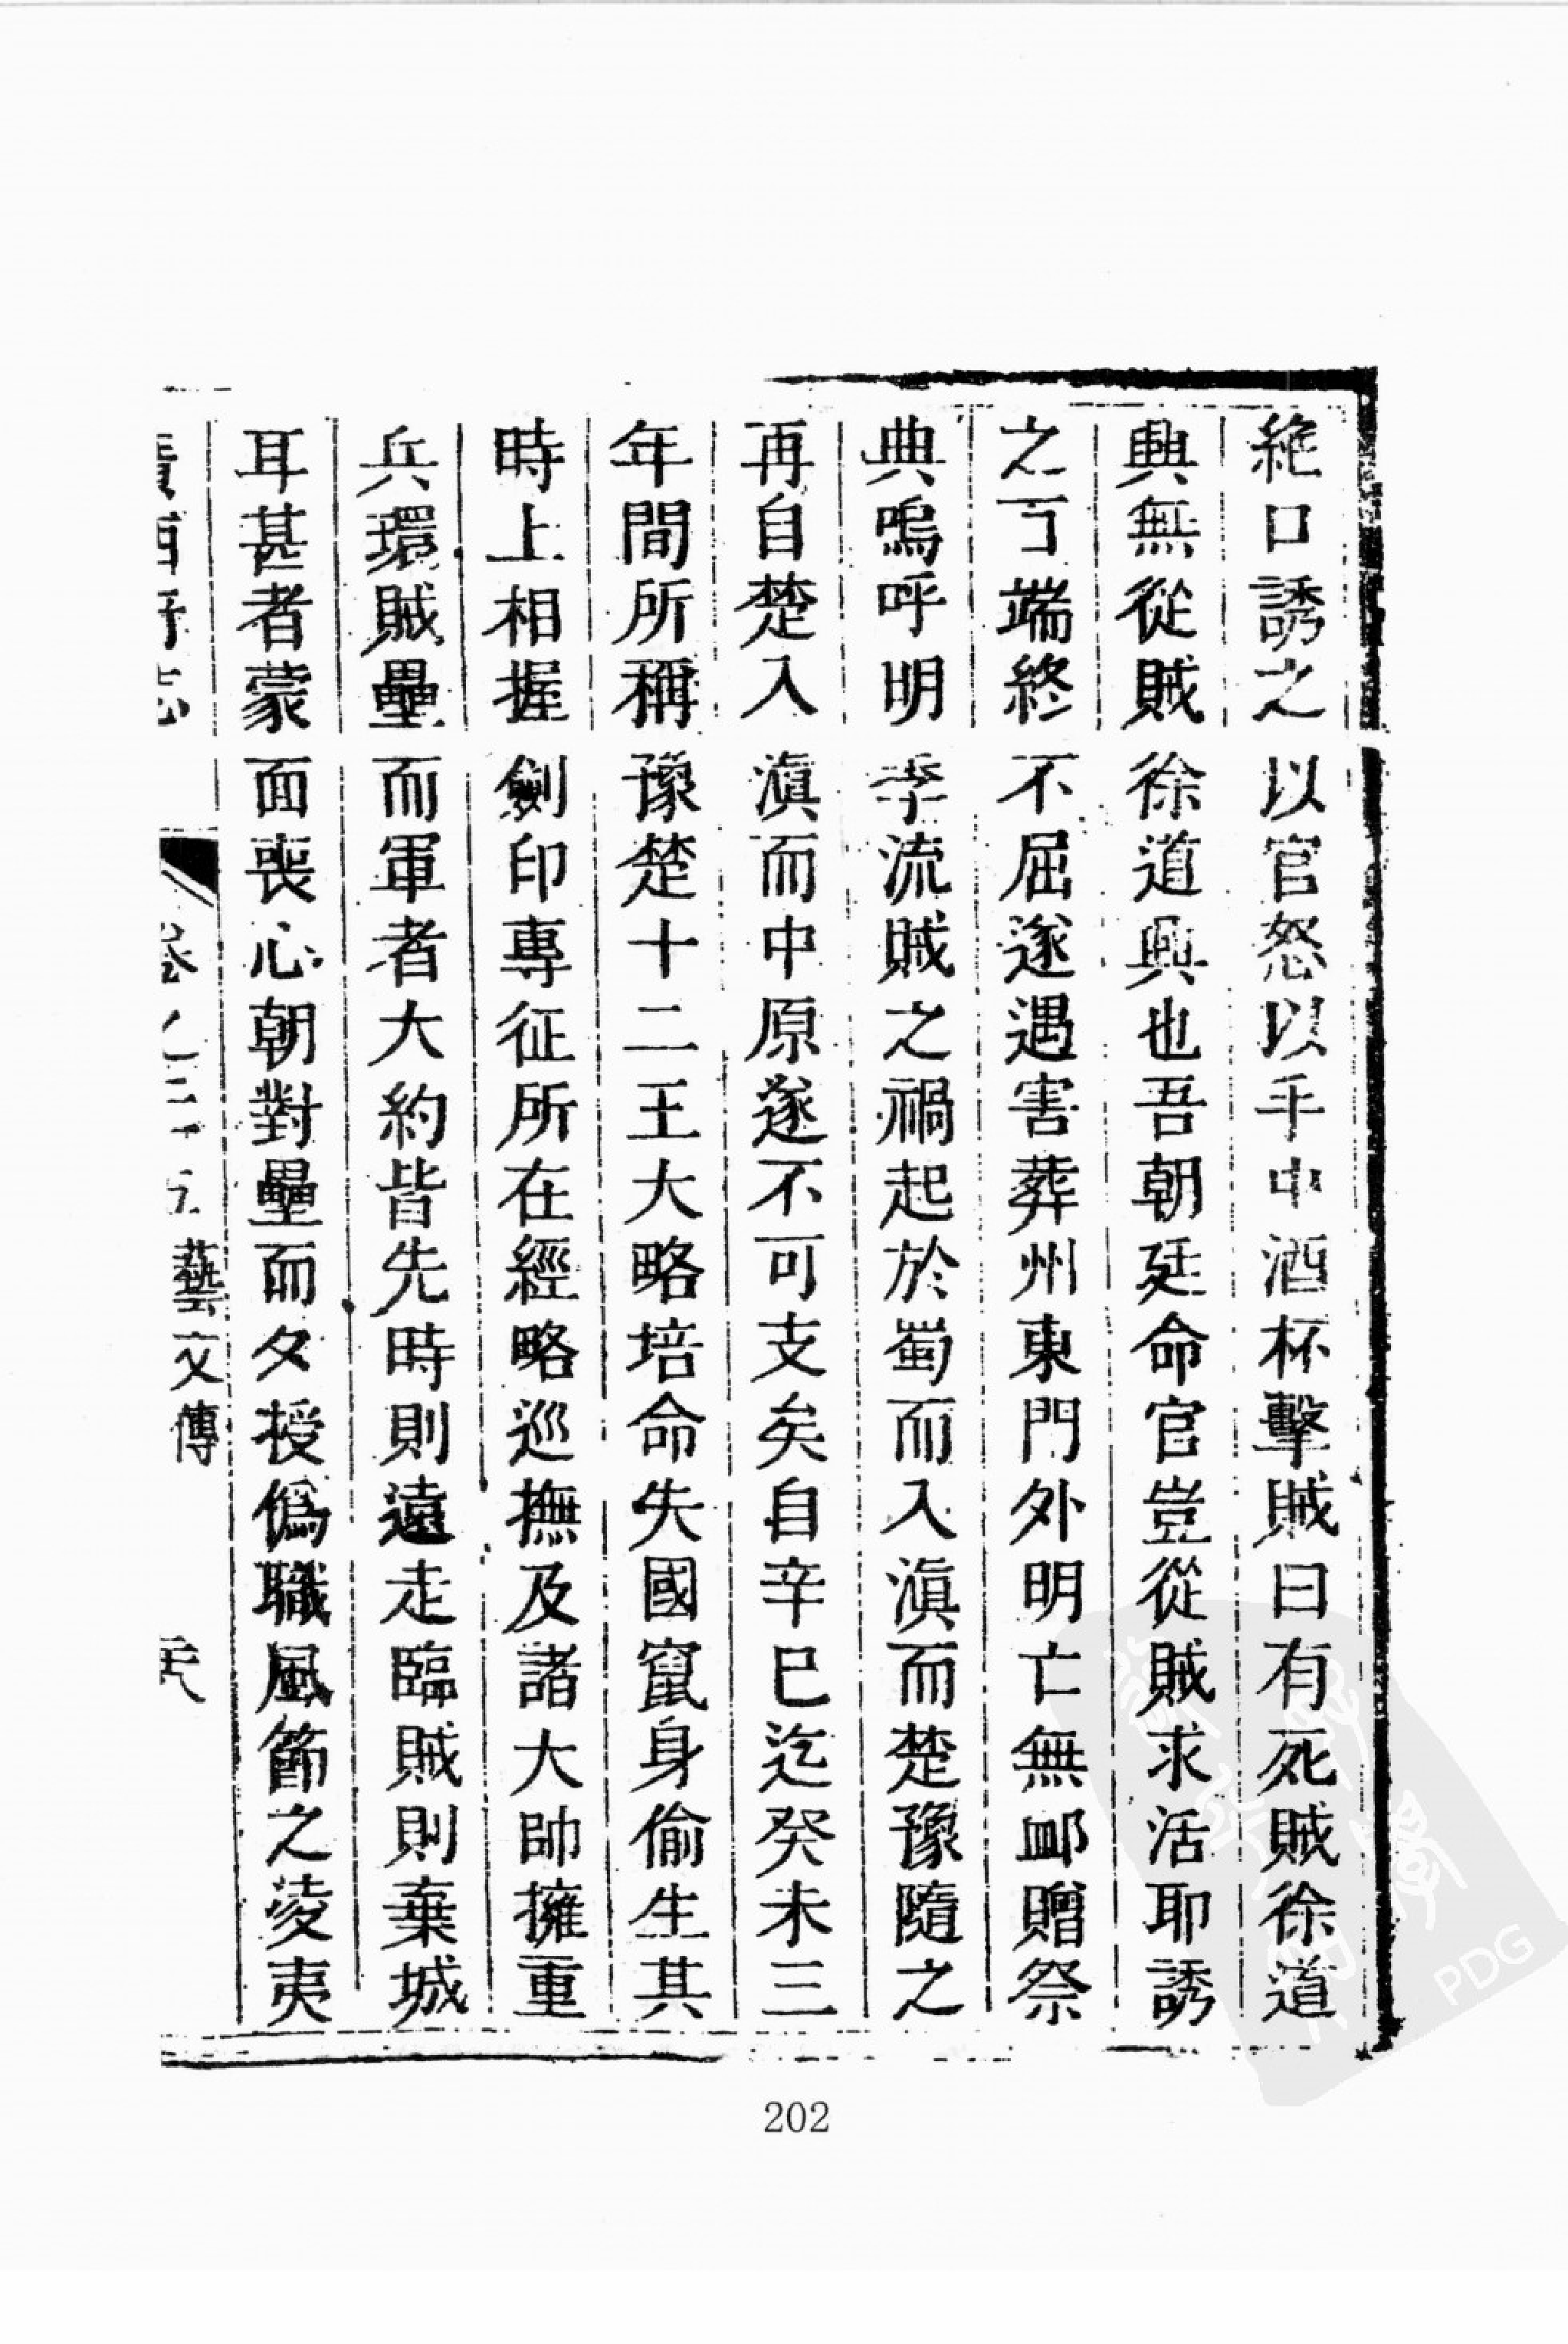 絶口誘之以官怒以手中酒杯擊賊曰有死賊徐道
興無從賊徐道興也吾朝廷命官豈從賊求活耶誘
之丂端終不屈遂遇害葬州東門外明亡無卹贈祭
典嗚呼明季流賊之禍起於蜀而入滇而楚豫隨之
再自楚入滇而中原遂不可支矣自辛巳迄癸未三
年間所稱豫楚十二王大略培命失國竄身偷生其
時上相握劍印專征所在經略巡撫及諸大帥擁重
兵環賊壘而軍者大約皆先時則遠走臨賊則棄城
耳甚者蒙面喪心朝對壘而夕授僞職風節之淩夷
卷之三五 藝文傳
202
PDG